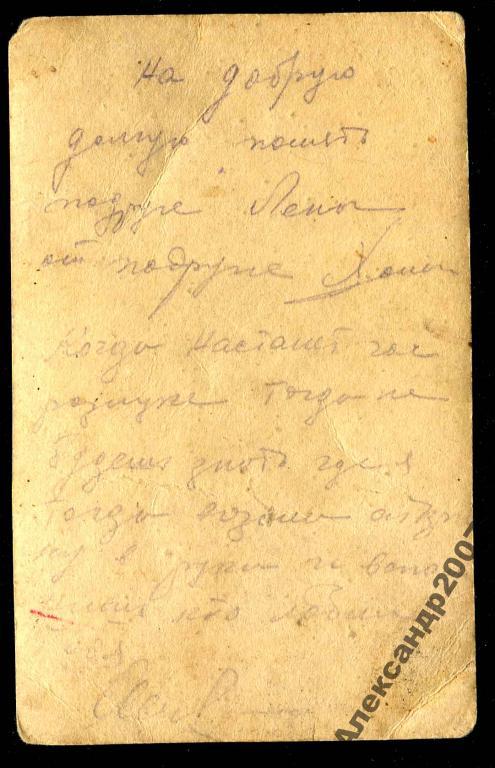 На добрую
долгую память
подруге Лены
от подруге
Когда настанет час
розлуке тогда не
будеш знать где я
тогда возми
ку в руки и вспо
кто любил
Александр2007